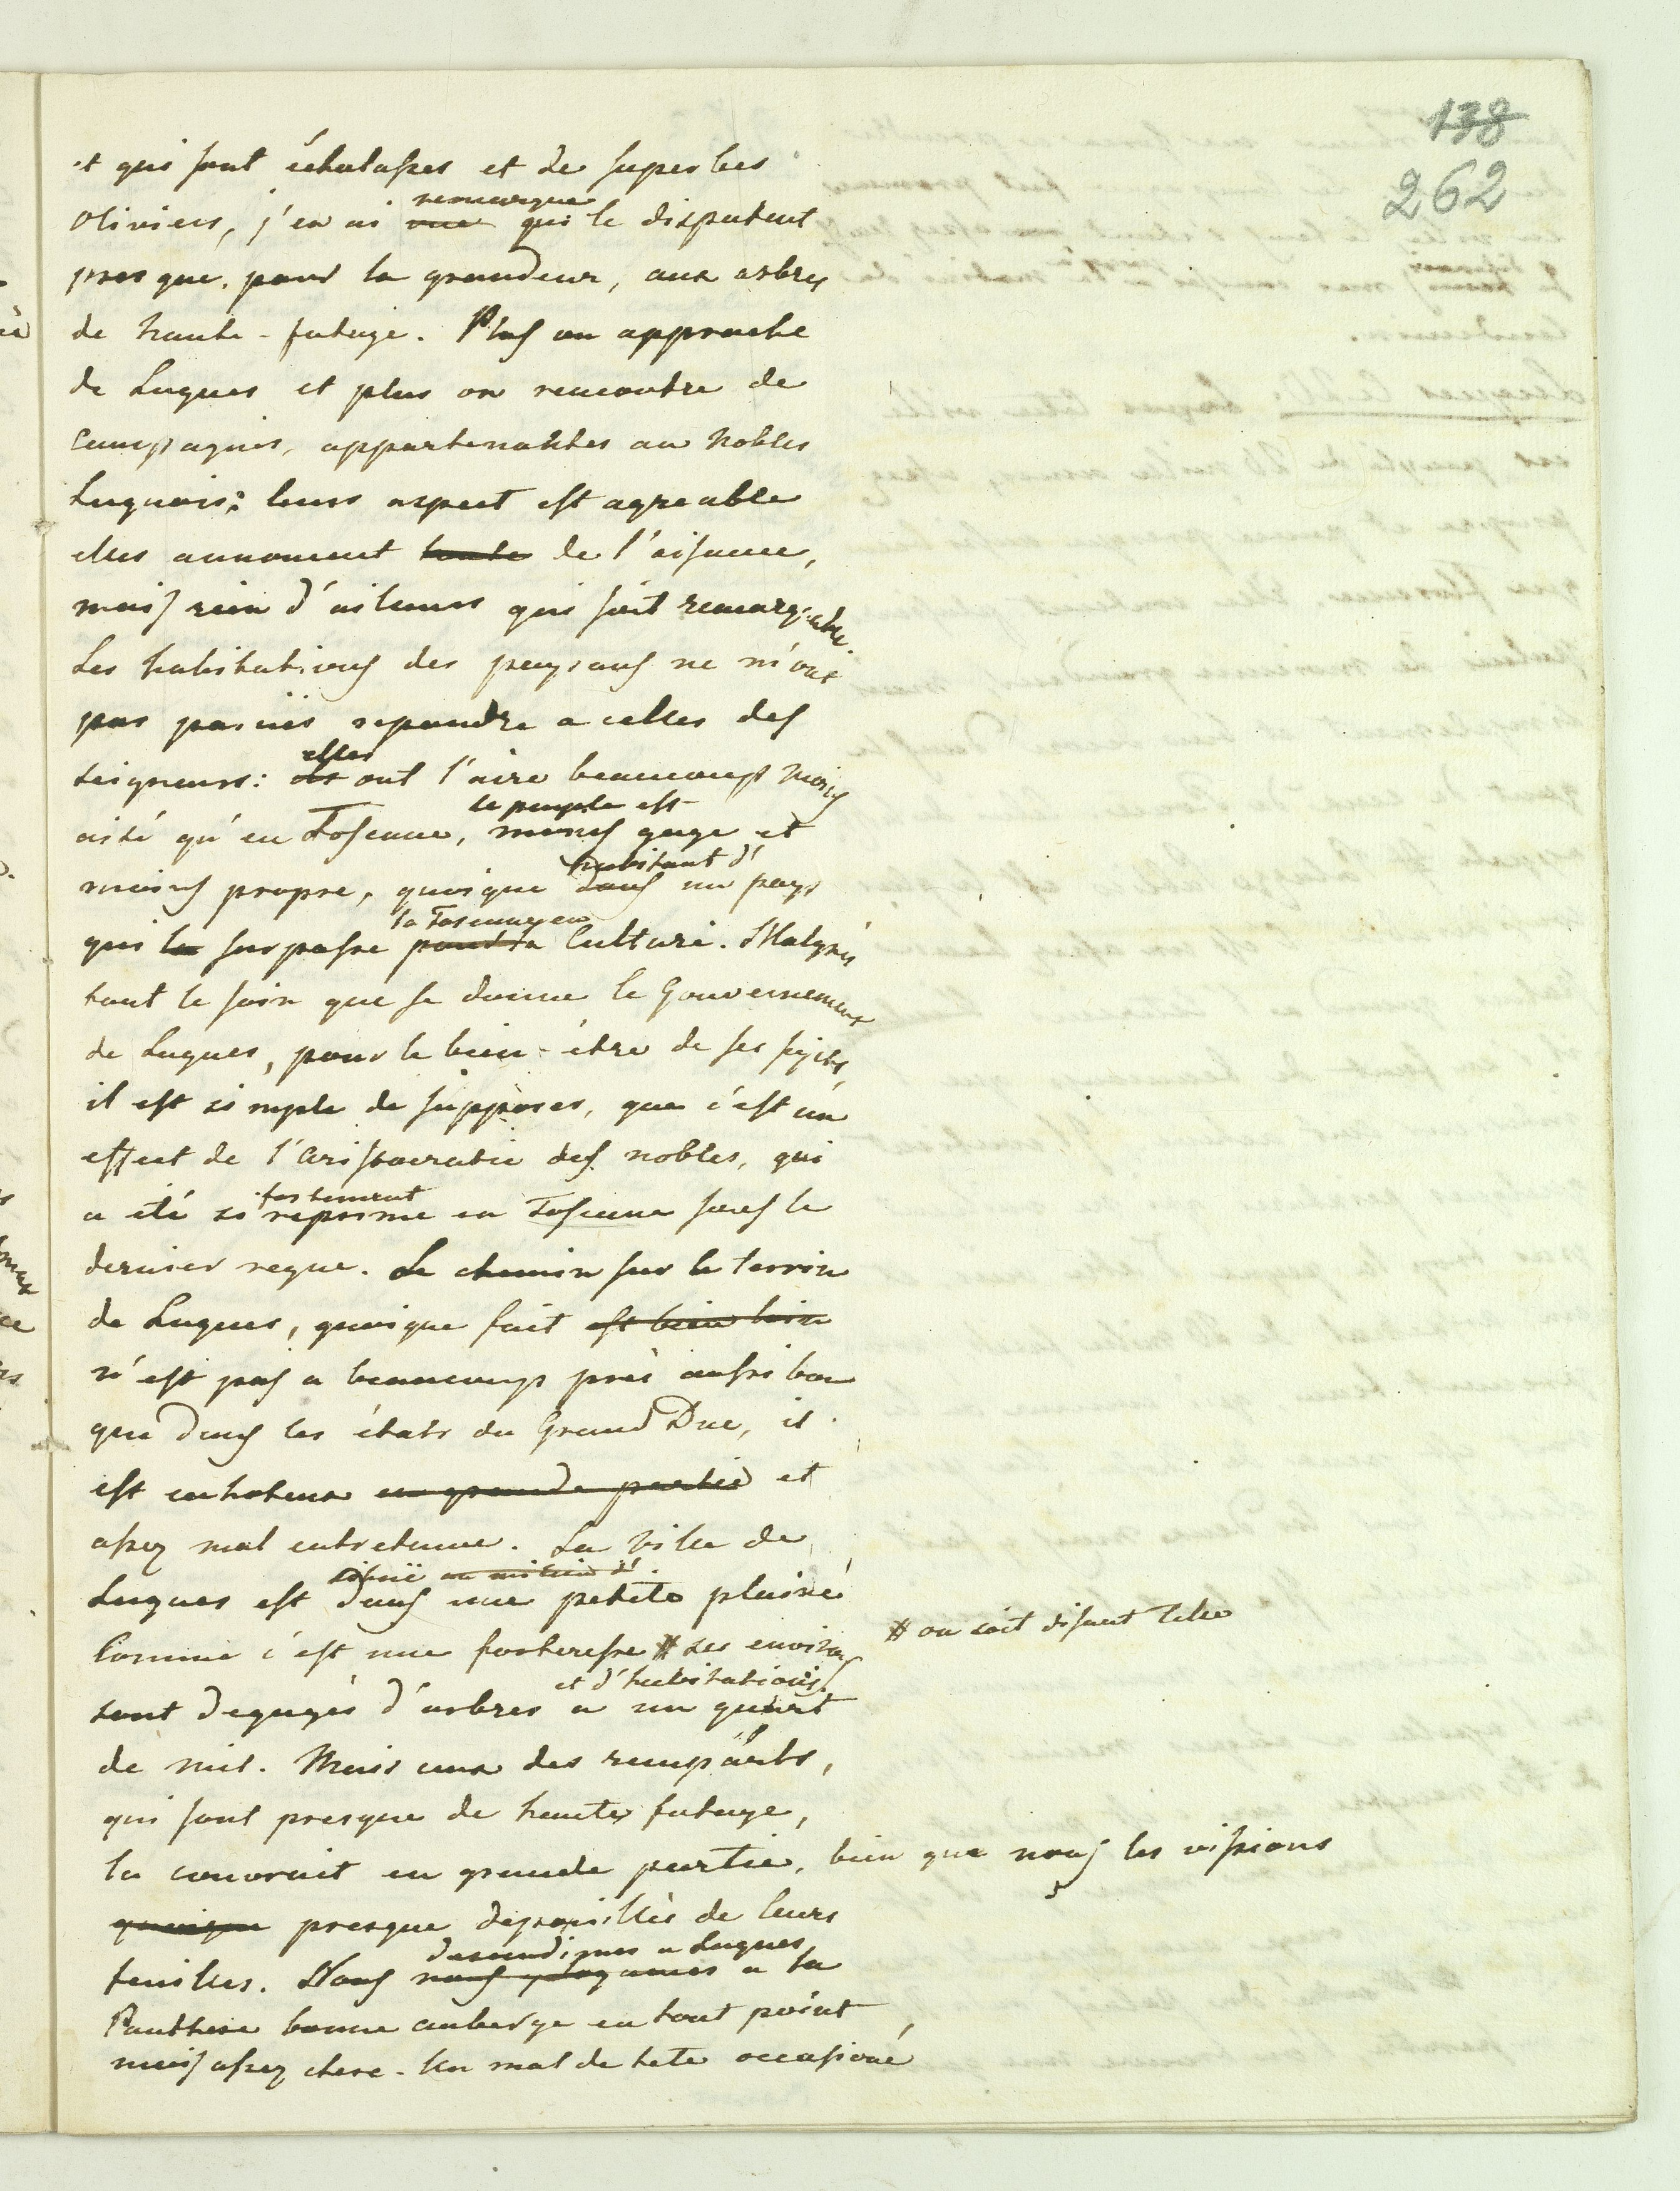 138
262
et qui sont échalasses et de superbes
oliviers, j'en ai vue remarque qui le disputent
presque, pour la grandeur, aux arbres
de haute-futaye. Plus on approche
de Luques et plus on rencontre de
campagnes, appartenantes au Nobles
Luquois: leurs aspect est agreable
elles annoncent toute de l'aisance,
mais rien d'ailleurs qui soit remarquable.
Les habitations des paysans ne m'ont
pas paruës repondre a celles des
seigneurs: elles ont l'aire beaucoup moins
aisé qu'en Toscane, le peuple est moins gage et
moins propre, quoique dans habitant d' un pays
qui la surpasse la Toscane en pour la Culture. Malgrés
tout le soin que se donne le Gouvernement
de Luques, pour le bien-être de ses sujets,
il est simple de supposer, que c'est un
effect de l'Aristocratie des nobles, qui
a été si fortement reprimé en Toscane sous le
dernier regne. Le chemin sur le terrin
de Luques, quoique fait est bien loin
n'est pas a beaucoup près aussi bon
que dans les états du Grand Duc, il
est en grande partie et
assez mal entretenue. La ville de
Luques est située au milieu d' dans une petite plaine
Comme c'est une forteresse # Les environs
# ou soit disant telle
sont degagés d'arbres et d'habitations a un quart
de mil. Mais ceux des remparts,
qui sont presque de haute futaye,
la couvrait en grande partie, bien que nous les vissions
quoique presque depouillés de leurs
feuilles. Nous descendimes a Luques a la
Panthere bonne auberge en tout point,
mais assez chere. Un mal de tete occasioné